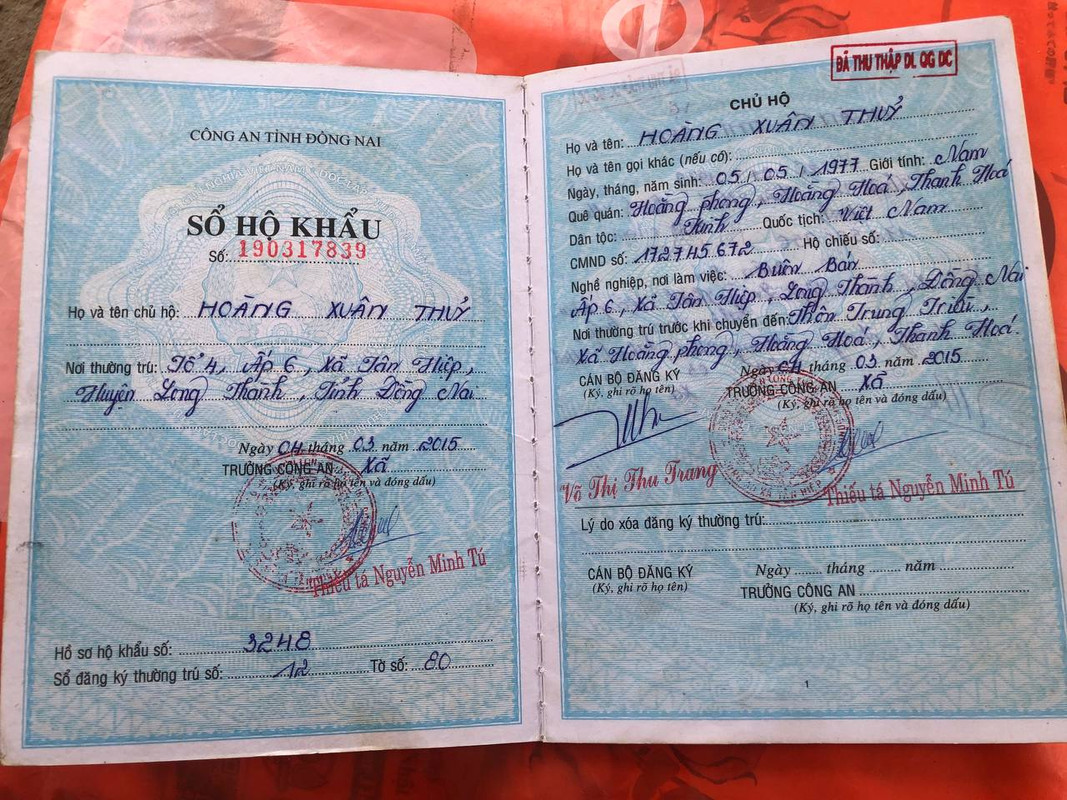 CÔNG AN TỈNH ĐỒNG NAI
SỔ HỘ KHẨU
Số: 190317839
Họ và tên chủ hộ: HOÀNG XUÂN THUỶ
Nơi thường trú: Tổ 4, Ấp 6, Xã Tân Hiệp,
Huyện Long Thành, Tỉnh Đồng Nai
Ngày 04 tháng 03 năm 2015
TRƯỞNG CÔNG AN Xã
(Ký, ghi rõ họ tên và đóng dấu)
Thiếu tá Nguyễn Minh Tú
Hồ sơ hộ khẩu số: 3248
Sổ đăng ký thường trú số: 12 Tờ số: 80
ĐÃ THU THẬP DL QG DC
CHỦ HỘ
Họ và tên: HOÀNG XUÂN THUỶ
Họ và tên gọi khác (nếu có):
Ngày, tháng, năm sinh: 05/05/1977 Giới tính: Nam
Quê quán: Hoằng phong, Hoằng Hoá, Thanh Hoá
Dân tộc: Kinh Quốc tịch: Việt Nam
CMND số: 172745672 Hộ chiếu số:
Nghề nghiệp, nơi làm việc: Buôn Bán
Ấp 6, Xã Tân Hiệp, Long Thành, Đồng Nai
Nơi thường trú trước khi chuyển đến: Thôn Trung Triều,
Xã Hoằng phong, Hoằng Hoá, Thanh Hoá.
Ngày 04 tháng 03 năm 2015
CÁN BỘ ĐĂNG KÝ TRƯỞNG CÔNG AN Xã
(Ký, ghi rõ họ tên) (Ký, ghi rõ họ tên và đóng dấu)
Võ Thị Thu Trang Thiếu tá Nguyễn Minh Tú
Lý do xóa đăng ký thường trú:
Ngày ........ tháng ........ năm
CÁN BỘ ĐĂNG KÝ TRƯỞNG CÔNG AN
(Ký, ghi rõ họ tên) (Ký, ghi rõ họ tên và đóng dấu)
1